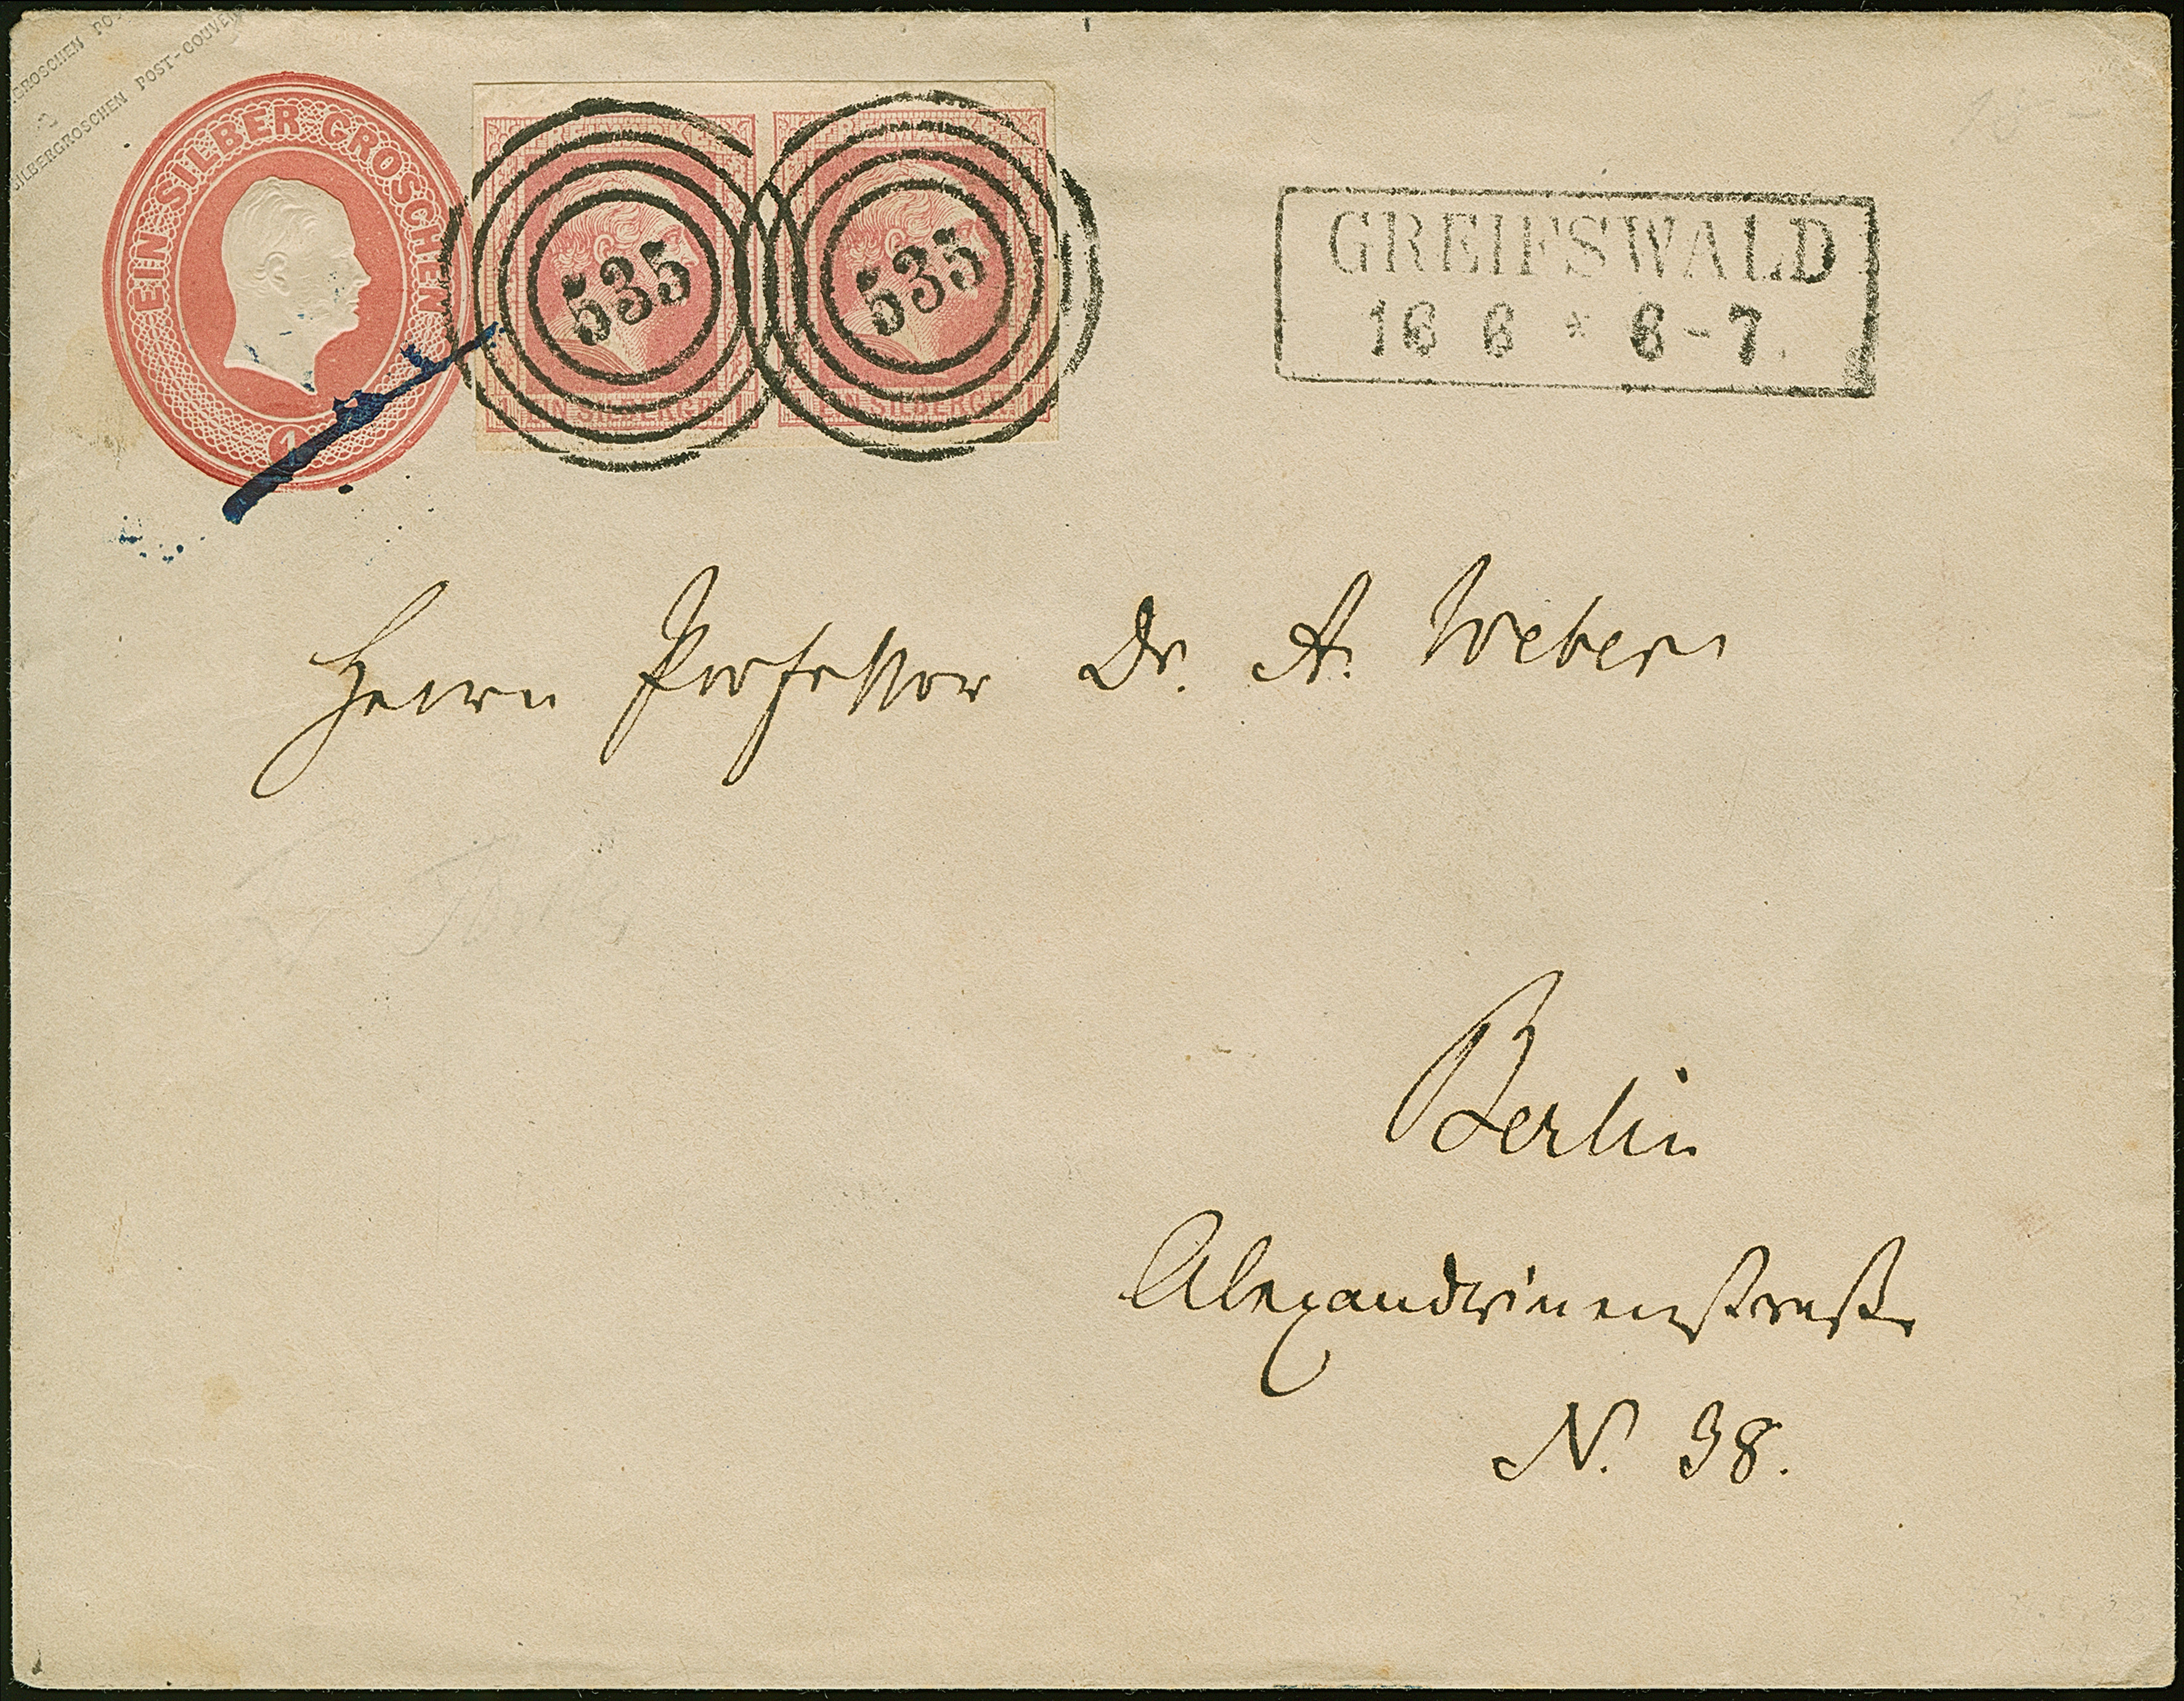 GROSCHEN PO
SILBERGROSCHEN POST-COUVER
EIN SILBER GROSCHEN
1
FREIMARKE
FREIMARKE
535
535
EIN SILBERGR.
EIN SILBERGR.
GREIFSWALD
16 6 * 6-7.
Herrn Professor Dr. A. Weber
Berlin
Alexandrinenstraße
N. 38.